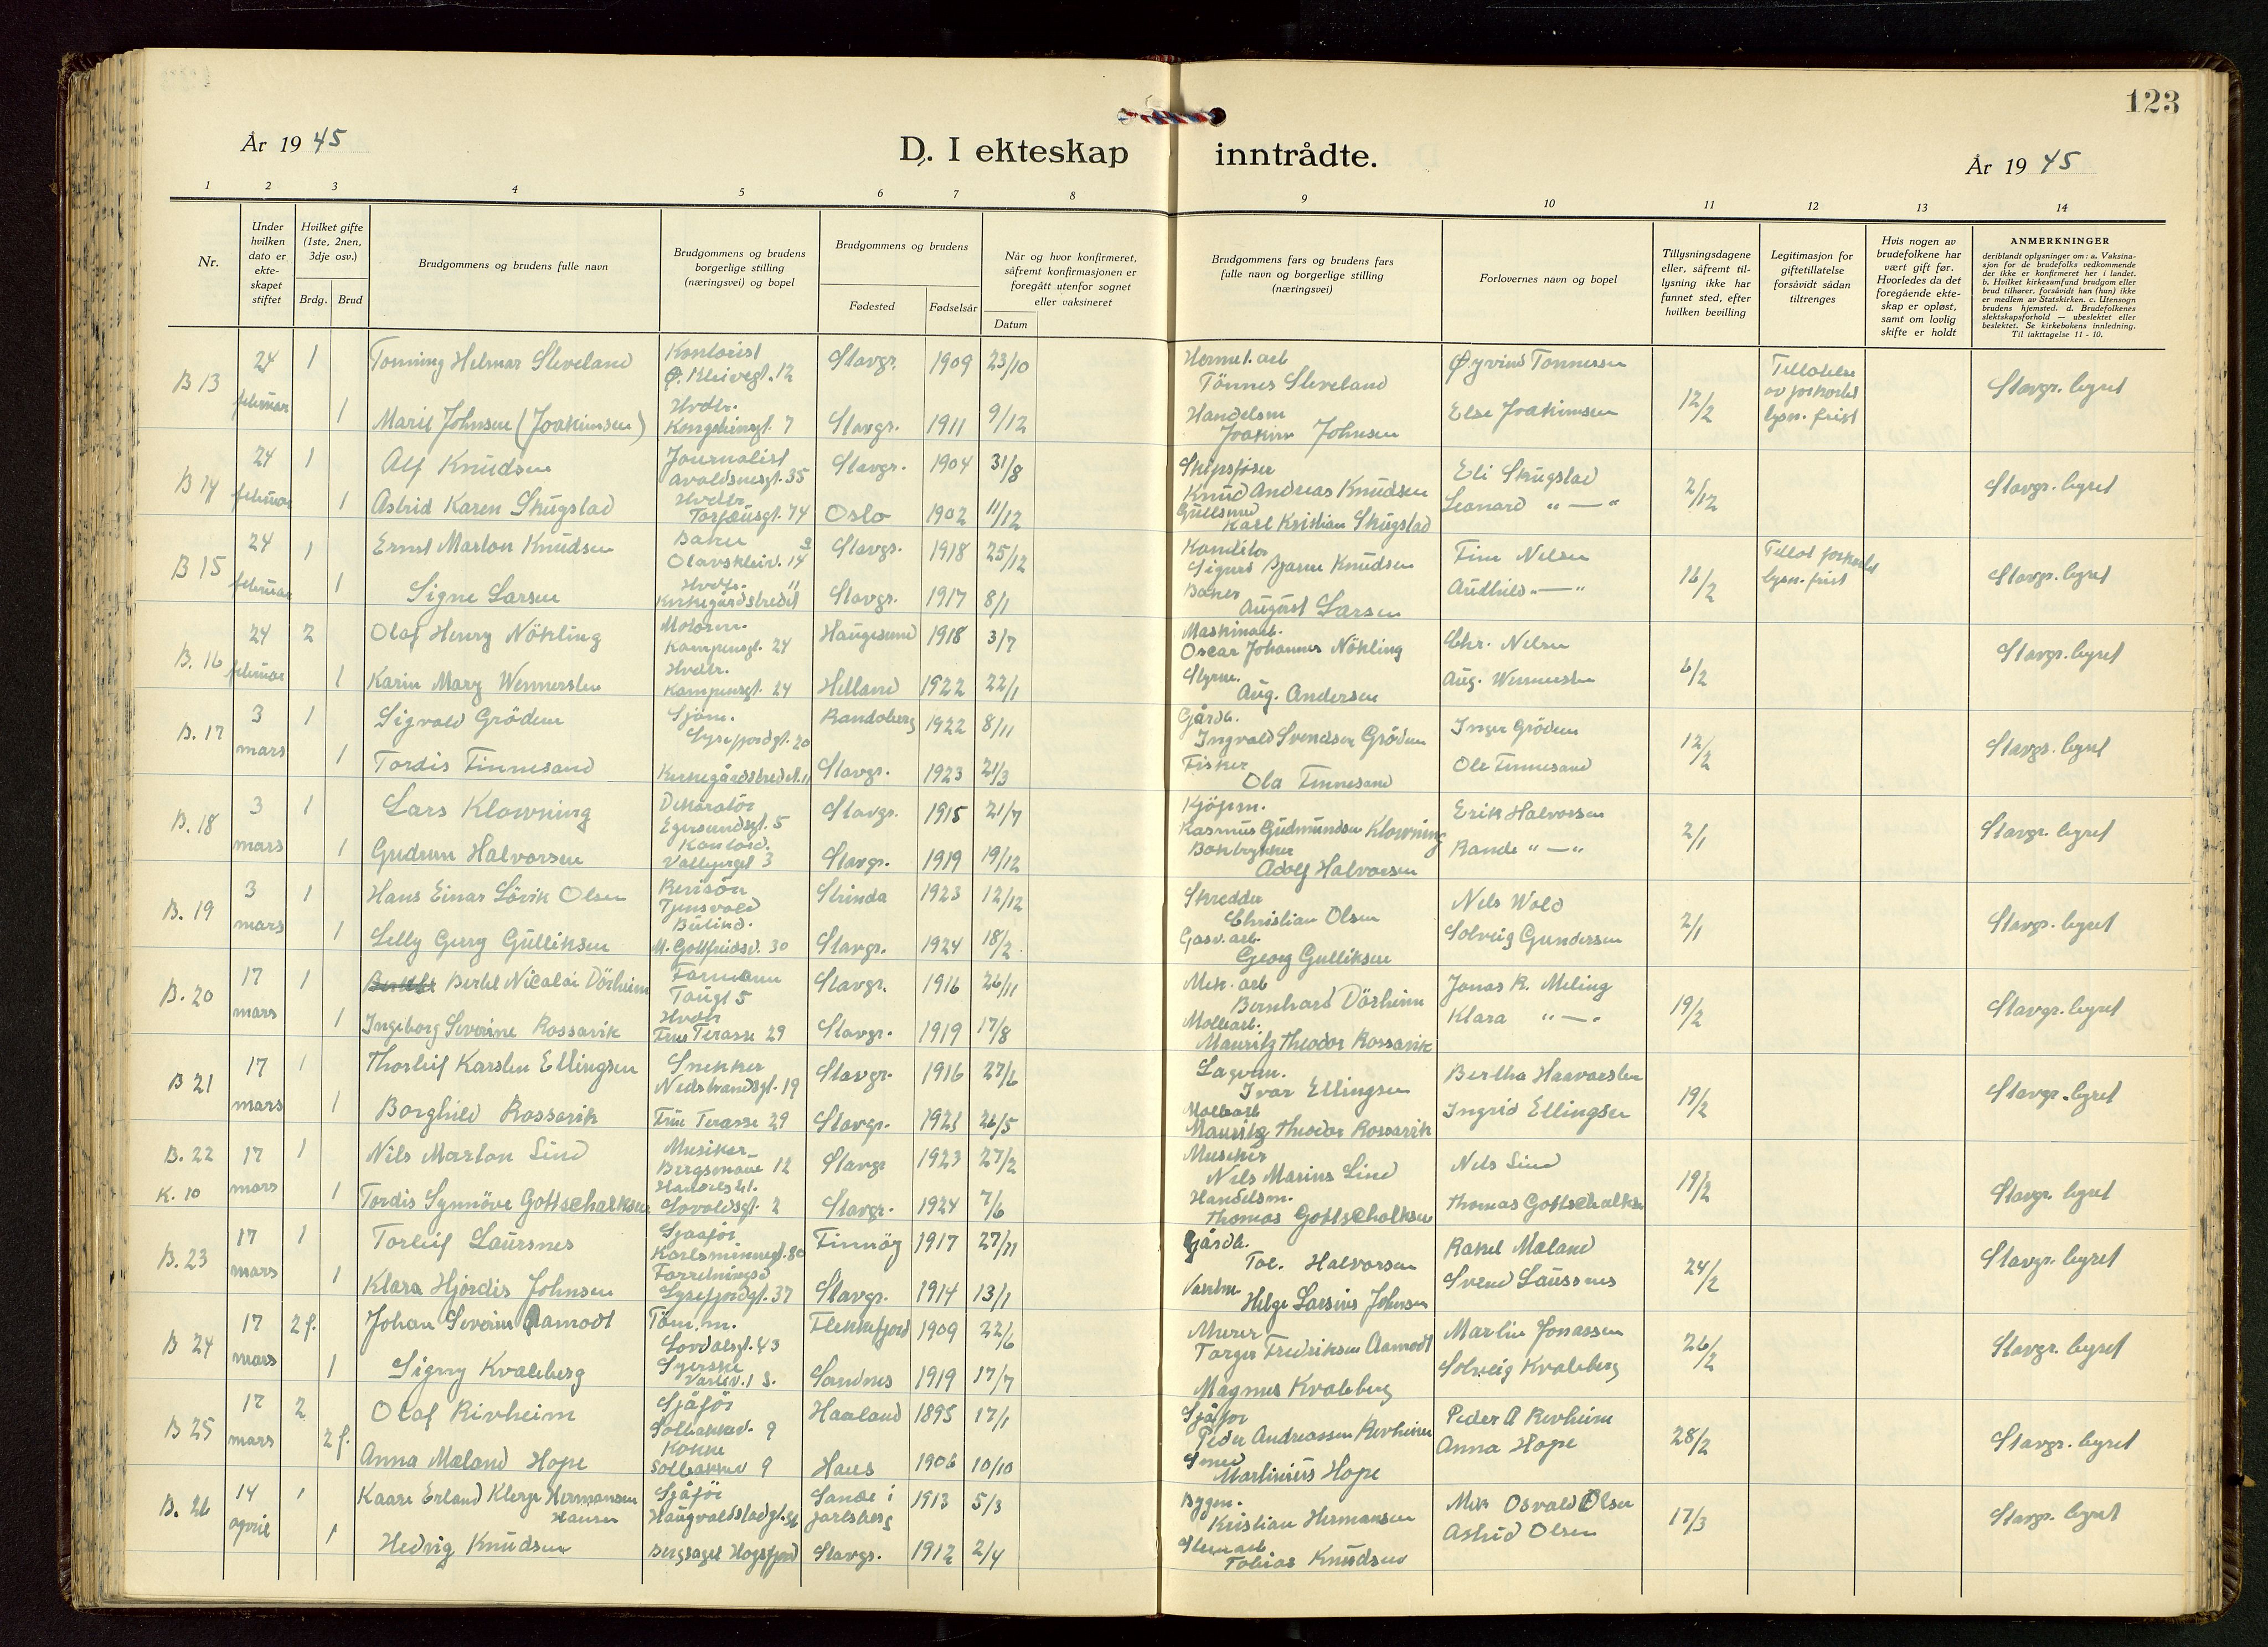 123
År 19 45
D. I ekteskap inntrådte.
År 19 45
1 2 3 4 5 6 7 8 9 10 11 12 13 14
Nr.
Under hvilken dato er ekte-skapet stiftet
Hvilket gifte (1ste, 2nen, 3dje osv.)
Brdg. Brud
Brudgommens og brudens fulle navn
Brudgommens og brudens borgerlige stilling (næringsvei) og bopel
Brudgommens og brudens
Fødested Fødselsår
Når og hvor konfirmeret, såfremt konfirmasjonen er foregått utenfor sognet eller vaksineret
Datum
Brudgommens fars og brudens fars fulle navn og borgerlige stilling (næringsvei)
Forlovernes navn og bopel
Tillysningsdagene eller, såfremt til-lysning ikke har funnet sted, efter hvilken bevilling
Legitimasjon for giftetillatelse forsåvidt sådan tiltrenges
Hvis nogen av brudefolkene har vært gift før. Hvorledes da det foregående ekte-skap er opløst, samt om lovlig skifte er holdt
ANMERKNINGER
deriblandt oplysninger om: a. Vaksina-sjon for de brudefolks vedkommende der ikke er konfirmeret her i landet. b. Hvilket kirkesamfund brudgom eller brud tilhører, forsåvidt han (hun) ikke er medlem av Statskirken. c. Utensogn brudens hjemsted. d. Brudefolkenes slektskapsforhold — ubeslektet eller beslektet. Se kirkebokens innledning. Til iakttagelse 11 - 10.
B 13 24 februar 1 Tonning Helmar Sleveland Kontorist Ø. Kleivegt. 12 Stavgr. 1909 23/10 Hermet.arb Tönnes Sleveland Øyvind Tonnessen 12/2 Tillatelse av forkortet lysn. frist Stavgr. byret
1 Marie Johnsen (Joakimsen) Hvdtr. Kongsteinsgt. 7 Stavgr. 1911 9/12 Handelsm Joakim Johnsen Else Joakimsen
B 14 24 februar 1 Alf Knudsen Journalist Avaldsnesgt. 35 Stavgr. 1904 31/8 Skipsfører Knud Andreas Knudsen Eli Skugstad 2/12 Stavgr. byret
1 Astrid Karen Skugstad Hvdtr. Torfæusgt. 74 Oslo 1902 11/12 Gullsmed Karl Kristian Skugstad Leonard " — "
B 15 24 februar 1 Ernst Marton Knudsen Baker Olavskleiv. 14 Stavgr. 1918 25/12 Konditor Sigurd Bjarne Knudsen Finn Nelsen 16/2 Tillat forkortet lysn. frist Stavgr. byret
1 Signe Larsen Hvdtr. Kirkegårdstredet 11 Stavgr. 1917 8/1 Baker August Larsen Audhild " — "
B. 16 24 februar 2 Olaf Henry Nökling Motorm. Kampensgt. 24 Haugesund 1918 3/7 Maskinarb. Oscar Johannes Nökling Chr. Nelsen 6/2 Stavgr. byret
1 Karin Mary Wennersten Hvdtr. Kampensgt. 24 Helland 1922 22/1 Styrm. Aug. Andersen Aug. Wennersten
B. 17 3 mars 1 Sigvald Grödem Sjöm. Lysefjordgt. 20 Randaberg 1922 8/11 Gårdb. Ingvald Svendsen Grödem Inger Grödem 12/2 Stavgr. byret
1 Tordis Finnesand Kirkegårdstredet. 11 Stavgr. 1923 21/3 Fisker Ola Finnesand Ole Finnesand
B. 18 3 mars 1 Lars Klowning Dekoratör Egersundsgt. 5 Stavgr. 1915 21/7 Kjöpm. Rasmus Gudmundsen Klowning Erik Halvorsen 2/1 Stavgr. byret
1 Gudrun Halvorsen Kontord. Vallbergt 3 Stavgr. 1919 19/12 Boktrykker Adolf Halvorsen Rande " — "
B. 19 3 mars 1 Hans Einar Lövik Olsen Revisör Tjensvold Strinda 1923 12/12 Skredder Christian Olsen Nels Wold 2/1 Stavgr. byret
1 Lelly Gerry Gulliksen Butind. M. Gottfriedsv. 30 Stavgr. 1924 18/2 Gasv. arb. Georg Gulliksen Solveig Gundersen
B. 20 17 mars 1 Bertel Nicolai Dörheim Formann Taugt 5 Stavgr. 1916 26/11 Mek. arb Bernhard Dörheim Jonas R. Meling 19/2 Stavgr. byret
1 Ingeborg Severine Rossavik Hvdtr Frue Terasse 29 Stavgr. 1919 17/8 Mollearb. Mauritz Theodor Rossavik Klara " — "
B 21 17 mars 1 Thorleif Karsten Ellingsen Snekker Nedstrandsgt. 19 Stavgr. 1916 27/6 Lagerm. Ivar Ellingsen Bertha Haavarsten 19/2 Stavgr. byret
1 Borghild Rossavik Frue Terasse 29 Stavgr. 1921 26/5 Mollearb Mauritz Theodor Rossavik Ingrid Ellingsen
B. 22 K. 10 17 mars 1 Nils Marton Lind Musiker Bergsmaue 12 Stavgr 1923 27/2 Musiker Nils Marius Lind Nels Lind 19/2 Stavgr. byret
1 Tordis Synnöve Gottschalksen Lovaldsgt. 2 Stavgr. 1924 7/6 Handelsm. Thomas Gottschalksen Thomas Gottschalksen
B. 23 17 mars 1 Torleif Laursnes Sjåför Karlsminnegt. 80 Finnöy 1917 27/11 Gårdb. Tol. Halvorsen Rakel Maland 24/2 Stavgr. byret
1 Klara Hjördis Johnsen Forretningsd Lysefjordgt. 37 Stavgr. 1914 13/1 Helge Larsius Johnsen Svend Laursnes
B 24 17 mars 2 f. Johan Severin Aamodt Töm.m. Lovdalsgt. 43 Flekkefjord 1909 22/6 Murer Torger Fredriksen Aamodt Martin Jonassen 26/2 Stavgr. byret
1 Signy Kvaleberg Syerske Varliv. 1 S. Sandnes 1919 17/7 Magnus Kvaleberg Solveig Kvaleberg
B 25 17 mars 2 Olaf Rivheim Sjåför Solbakkev. 9 Haaland 1895 17/1 Sjåför Peder Andreassen Revheim Peder A Revheim 28/2 Stavgr. byret
2 f. Anna Maland Hope Kokke Solbakkev 9 Haus 1906 10/10 Smed Martinius Hope Anna Hope
B. 26 14 april 1 Kaare Erland Klerge Hermansen Hansen Sjåför Haugvaldstadgt. 36 Sande i Jarlsberg 1913 5/3 Bygm. Kristian Hermansen Mek Osvald Olsen 17/3 Stavgr. byret
1 Hedvig Knudsen Bergsagel Hogsfjord Stavgr. 1912 2/4 Tobias Knudsen Astrid Olsen